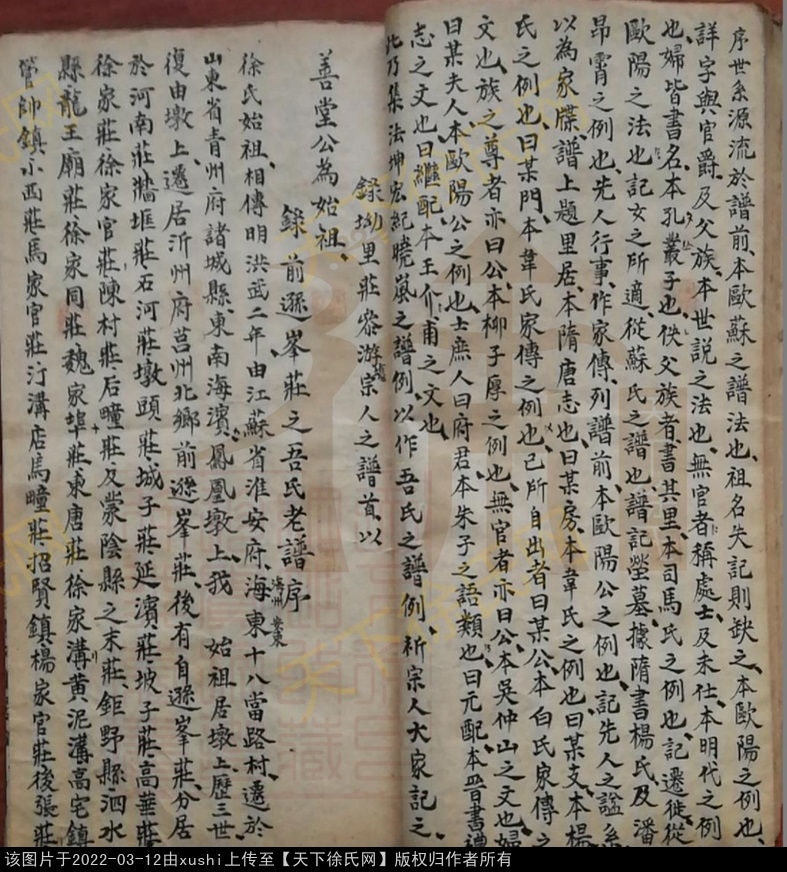 序世系源流於譜前、本歐蘇之譜法也、祖名失記則缺之、本歐陽之例也、
詳字與官爵、及父族、本世説之法也、無官者稱處士、及未仕、本明代之例
也、婦皆書名、本孔叢子也、佚父族者、書其里、本司馬氏之例也、記遷徙、從
歐陽之法也、記女之所適、從蘇氏之譜也、譜記塋墓、據隋書楊氏及潘
昂霄之例也、先人行事、作家傳、列譜前、本歐陽公之例也、記先人之謚系
以為家牒、譜上題里居、本隋唐志也、曰某房、本韋氏之例也、曰某支、本楊
氏之例也、曰某門、本韋氏家傳之例也、己所自出者曰某公、本白氏家傳之
文也、族之尊者亦曰公、本柳子厚之例也、無官者亦曰公、本吳仲山之文也、婦
曰某夫人、本歐陽公之例也、士庶人曰府君、本朱子之語類也、曰元配、本晉書禮
志之文也、曰繼配、本王介甫之文也、
此乃集法坤宏紀曉嵐之譜例、以作吾氏之譜例、祈宗人大家記之、
錄坳里莊恭游宗人之譜首、以
善堂公為始祖、
錄前遜峯莊之吾氏老譜序
徐氏始祖、相傳明洪武二年、由江蘇省淮安府、海東十八當路村、遷於
海州 安東
山東省青州府諸城縣、東南海濱、鳳凰墩上、我 始祖居墩上、歷三世、
復由墩上、遷居沂州府莒州北鄉前遜峯莊、後有自遜峯莊、分居
於河南莊、牆框莊、石河莊、墩頭莊、城子莊、延濱莊、坡子莊、高華莊
徐家莊、徐家官莊、陳村莊、后疃莊、及蒙陰縣之末莊、鉅野縣、泗水
縣、龍王廟莊、徐家同莊、魏家埠莊、東唐莊、徐家溝、黄泥溝、高宅鎮
管帥鎮、小西莊、馬家官莊、汀溝店、馬疃莊、招賢鎮、楊家官莊、後張莊
该图片于2022-03-12由xushi上传至【天下徐氏网】版权归作者所有